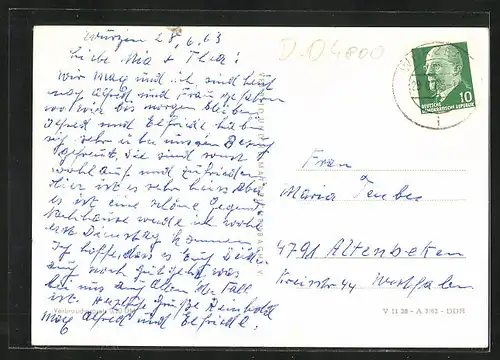 Wurzen 28.6.63
Liebe Mia + Thea!
Wir May und ich sind heute
nach Alfred und Frau gefahren
wo wir bis morgen bleiben
Alfred und Elfriede haben
sich sehr über unsern Besuch
gefreut, sie sind sonst
wohlauf und zufrieden
Hier ist es sehr heiss Aber
es ist eine schöne Gegend
Nachhause werde ich wohl
erst Dienstag kommen
Ich hoffe dass es Euch Beiden
auch noch gut geht was
bei uns auch Allen der Fall
ist. Herzliche Grüße Reinhold
May Alfred und Elfriede.
D-D4800
10
DEUTSCHE
DEMOKRATISCHE REPUBLIK
Frau
Maria
4791 Altenbeken
Kreisstr 44 Westfalen
V 11 28 - A 3/62 - DDR